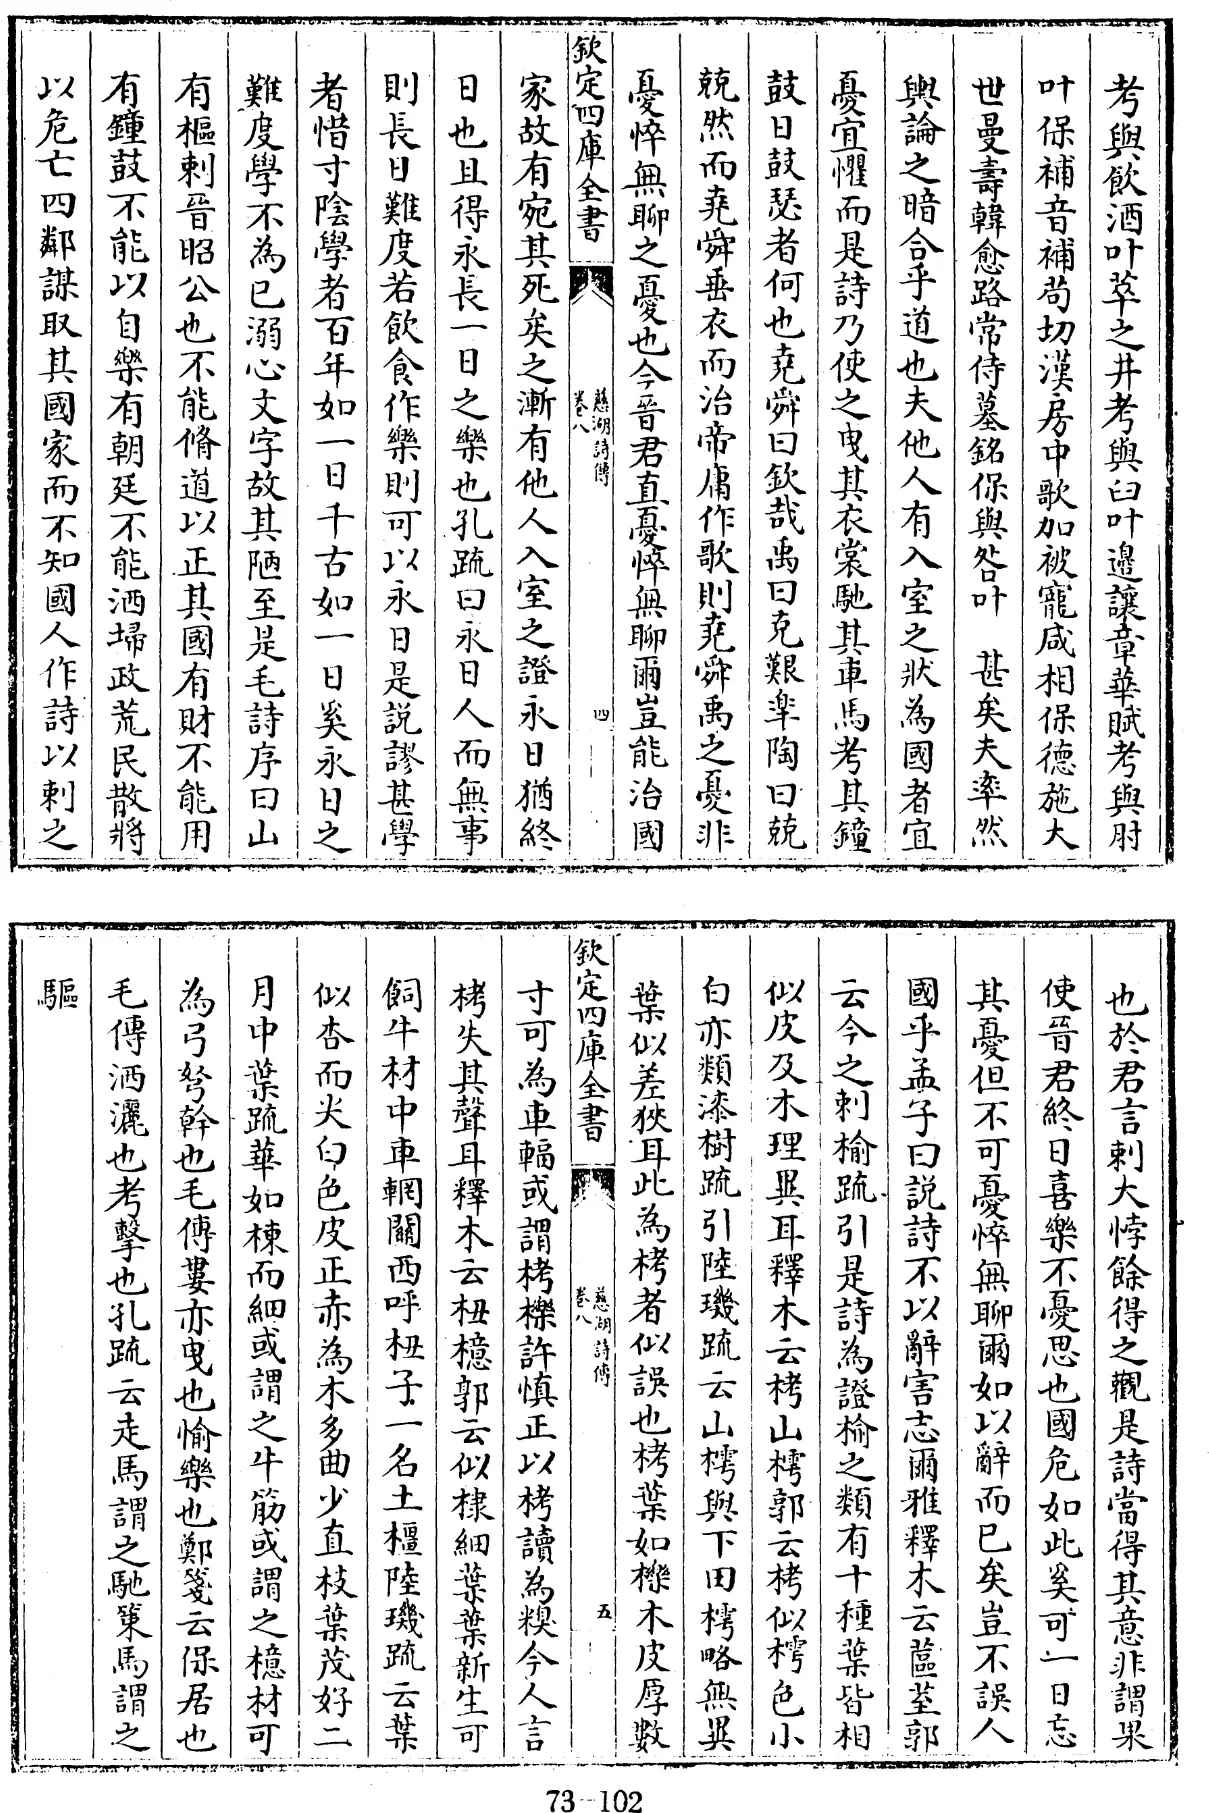 考與飲酒叶莩之井考與臼叶邉讓章華賦考與肘
叶保補音補茍切漢房中歌加被寵咸相保德施大
世曼壽韓愈路常侍墓銘保與咎叶　甚矣夫率然
輿論之暗合乎道也夫他人有入室之狀為國者宜
憂宜懼而是詩乃使之曳其衣裳馳其車馬考其鐘
鼓日鼓瑟者何也堯舜曰欽哉禹曰克艱臯陶曰兢
兢然而堯舜垂衣而治帝庸作歌則堯舜禹之憂非
憂悴無聊之憂也今晉君直憂悴無聊爾豈能治國
欽定四庫全書
慈湖詩傳
卷八
四
家故有宛其死矣之漸有他人入室之證永日猶終
日也且得永長一日之樂也孔疏曰永日人而無事
則長日難度若飲食作樂則可以永日是説謬甚學
者惜寸陰學者百年如一日千古如一日奚永日之
難度學不為已溺心文字故其陋至是毛詩序曰山
有樞刺晉昭公也不能脩道以正其國有財不能用
有鐘鼓不能以自樂有朝廷不能洒埽政荒民散將
以危亡四鄰謀取其國家而不知國人作詩以刺之
也於君言刺大悖餘得之觀是詩當得其意非謂果
使晉君終日喜樂不憂思也國危如此奚可一日忘
其憂但不可憂悴無聊爾如以辭而已矣豈不誤人
國乎孟子曰説詩不以辭害志爾雅釋木云藲荎郭
云今之刺榆疏引是詩為證榆之類有十種葉皆相
似皮及木理異耳釋木云栲山樗郭云栲似樗色小
白亦類漆樹疏引陸璣疏云山樗與下田樗略無異
葉似差狹耳此為栲者似誤也栲葉如櫟木皮厚數
欽定四庫全書
慈湖詩傳
卷八
五
寸可為車輻或謂栲櫟許慎正以栲讀為糗今人言
栲失其聲耳釋木云杻檍郭云似棣細葉葉新生可
飼牛材中車輞關西呼杻子一名土橿陸璣疏云葉
似杏而尖白色皮正赤為木多曲少直枝葉茂好二
月中葉疏華如楝而細或謂之牛筋或謂之檍材可
為弓弩幹也毛傳婁亦曳也愉樂也鄭箋云保居也
毛傳洒灑也考擊也孔疏云走馬謂之馳策馬謂之
驅
73-102